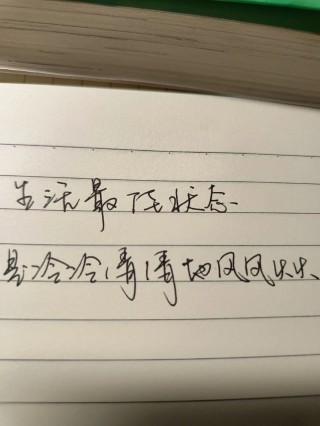 生活最佳状态
是冷冷清清地风风火火